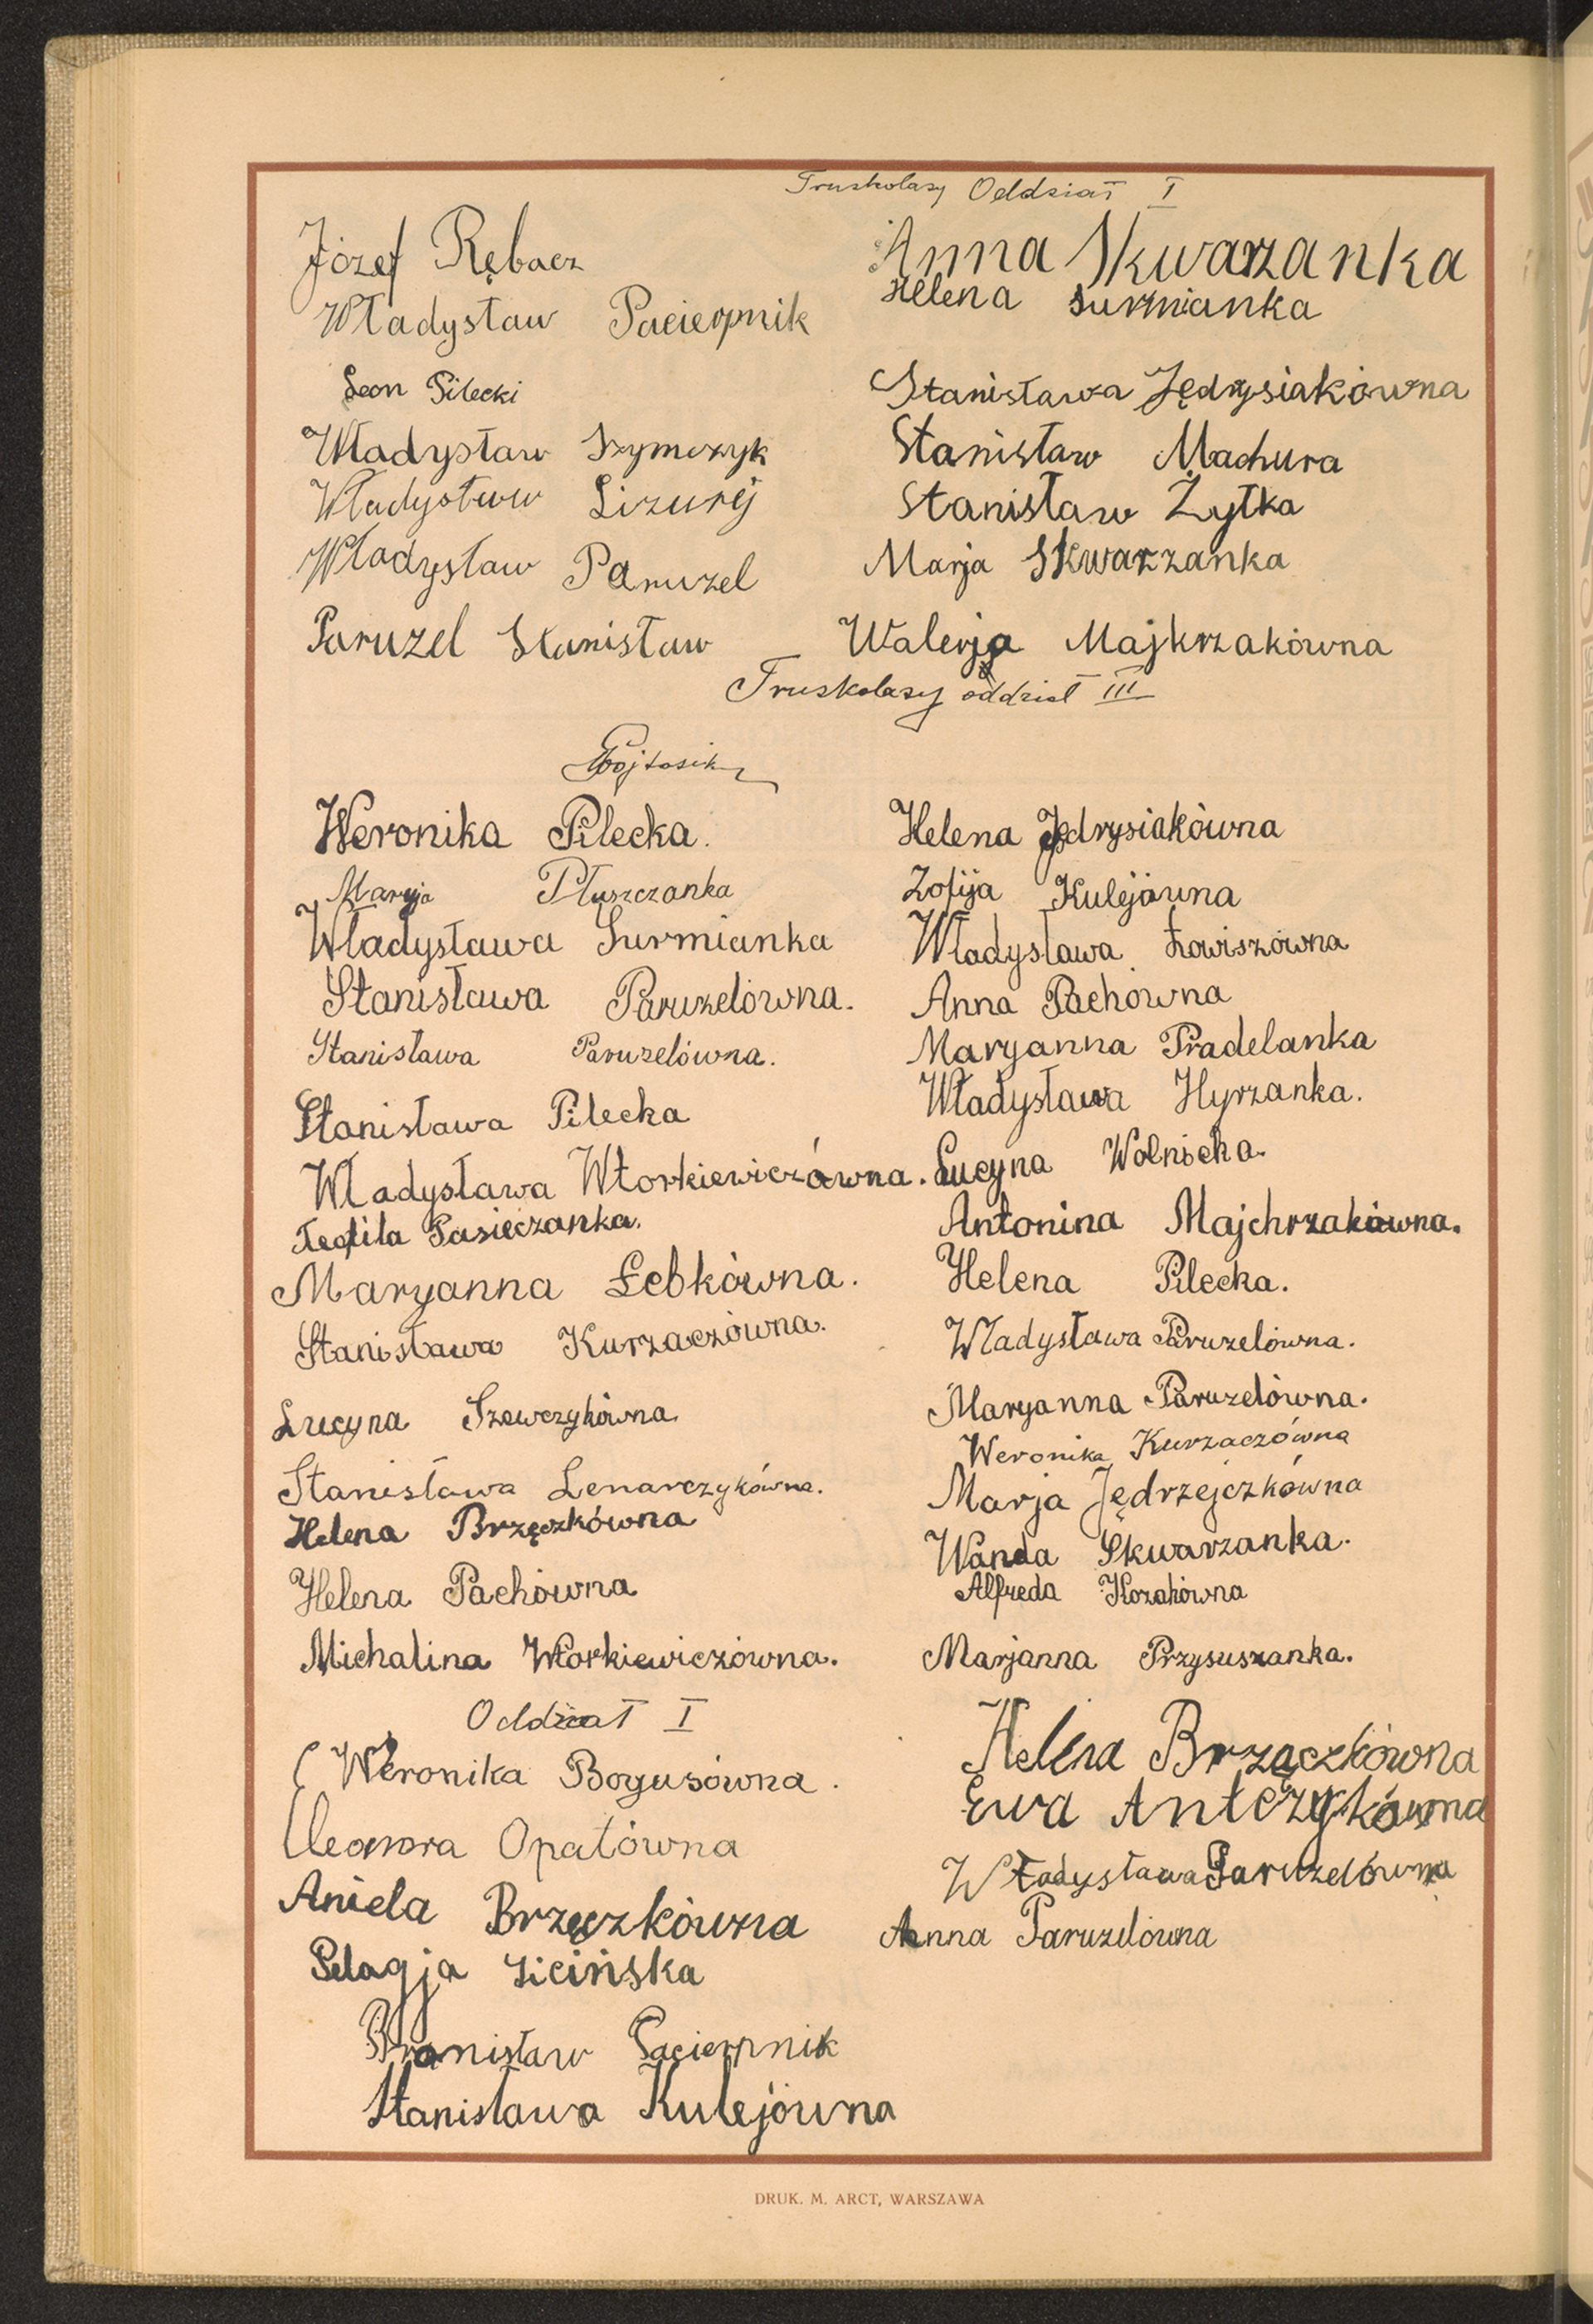 Truskolasy Oddział I
Józef Rębacz
Władysław Paciepnik
Leon Pilecki
Władysław Szymczyk
Władysław Lizurej
Władysław Paruzel
Paruzel Stanisław
Anna Skwarzanka
Helena Surmianka
Stanisława Jędrysiakówna
Stanisław Machura
Stanisław Żytka
Marja Skwarzanka
Walerja Majkrzakówna
Truskolasy oddział III
Weronika Pilecka.
Maryja Płuszczanka
Władysława Surmianka
Stanisława Paruzelówna.
Stanisława Paruzelówna.
Stanisława Pilecka
Władysława Wtorkiewiczówna.
Teofila Pasieczanka.
Maryanna Łebkówna.
Stanisława Kurzaczówna.
Lucyna Szewczykówna.
Stanisława Lenarczykówna.
Helena Brzęczkówna
Helena Pachówna
Michalina Wtorkiewiczówna.
Helena Jędrysiakówna
Zofija Kulejówna
Władysława Łowiszówna
Anna Pachówna
Maryanna Pradelanka
Władysława Hyrzanka.
Lucyna Wolnicka.
Antonina Majchrzakówna.
Helena Pilecka.
Władysława Paruzelówna.
Maryanna Paruzelówna.
Weronika Kurzaczówna
Marja Jędrzejczkówna
Wanda Skwarzanka.
Alfreda Kozakówna
Marjanna Przysuszanka.
Oddział I
Weronika Bogusówna.
Eleonora Opatówna
Aniela Brzęczkówna
Pelagja Zicińska
Bronisław Paciepnik
Stanisława Kulejówna
Helena Brzączkówna
Ewa Antczykówna
Władysława Paruzelówna
Anna Paruzelówna
DRUK. M. ARCT, WARSZAWA